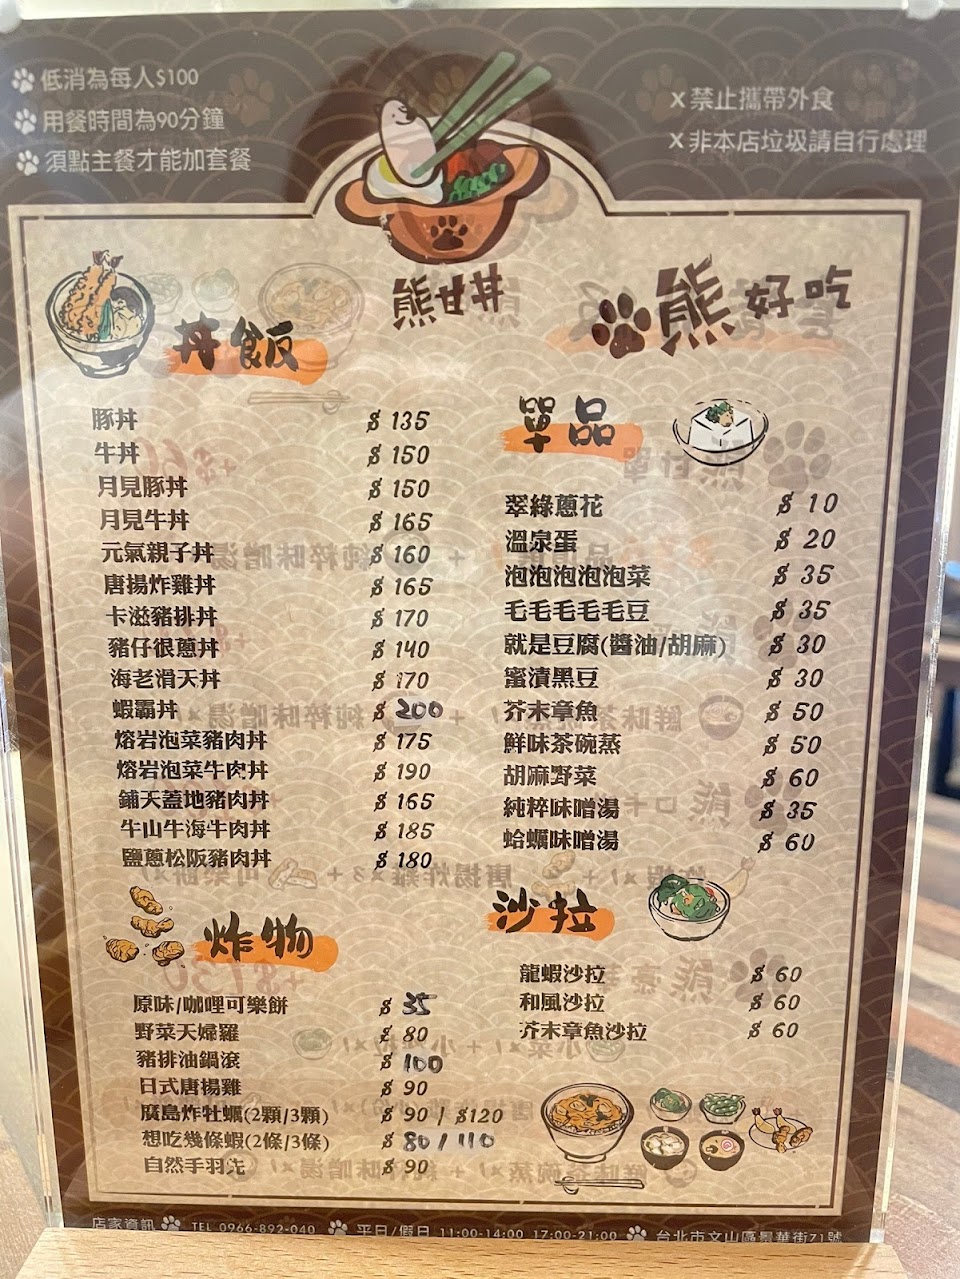 低消為每人$100
用餐時間為90分鐘
須點主餐才能加套餐
X禁止攜帶外食
X非本店垃圾請自行處理
熊甘丼
熊好吃
丼飯
豚丼 $ 135
牛丼 $ 150
月見豚丼 $ 150
月見牛丼 $ 165
元氣親子丼 $ 160
唐揚炸雞丼 $ 165
卡滋豬排丼 $ 170
豬仔很蔥丼 $ 140
海老滑天丼 $ 170
蝦霸丼 $ 200
熔岩泡菜豬肉丼 $ 175
熔岩泡菜牛肉丼 $ 190
鋪天蓋地豬肉丼 $ 165
牛山牛海牛肉丼 $ 185
鹽蔥松阪豬肉丼 $ 180
單品
翠綠蔥花 $ 10
溫泉蛋 $ 20
泡泡泡泡泡菜 $ 35
毛毛毛毛毛豆 $ 35
就是豆腐(醬油/胡麻) $ 30
蜜漬黑豆 $ 30
芥末章魚 $ 50
鮮味茶碗蒸 $ 50
胡麻野菜 $ 60
純粹味噌湯 $ 35
蛤蠣味噌湯 $ 60
炸物
原味/咖哩可樂餅 $ 35
野菜天婦羅 $ 80
豬排油鍋滾 $ 100
日式唐楊雞 $ 90
廣島炸牡蠣(2顆/3顆) $ 90 / $120
想吃幾條蝦(2條/3條) $ 80 / 110
自然手羽先 $ 90
沙拉
龍蝦沙拉 $ 60
和風沙拉 $ 60
芥末章魚沙拉 $ 60
店家資訊 TEL 0966-892-040 平日/假日 11:00-14:00 17:00-21:00 台北市文山區景華街71號